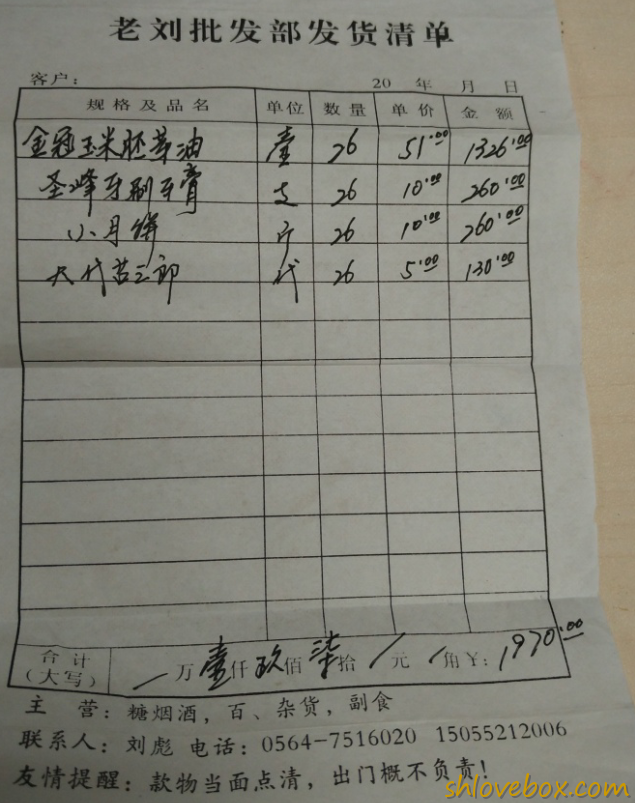 老刘批发部发货清单
客户： 20 年 月 日
规格及品名 单位 数量 单价 金额
金冠玉米胚芽油 壹 26 51.00 1326.00
圣峰牙刷牙膏 支 26 10.00 260.00
小月饼 斤 26 10.00 260.00
大代苔三郎 代 26 5.00 130.00
合计（大写） 一万壹仟玖佰柒拾/元/角￥：1970.00
主 营：糖烟酒，百、杂货，副食
联系人：刘彪 电话：0564-7516020 15055212006
友情提醒：款物当面点清，出门概不负责！
shlovebox.com